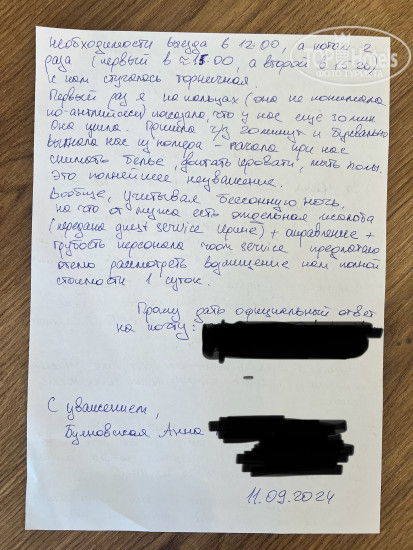 TopHotels
ФОТО ТУРИСТА
необходимости выезда в 12:00, а потом 2
раза (первый в ≈ 15:00, а второй в 15:20)
к нам стучалась горничная.
Первый раз я на пальцах (она не понимала
по-английски) показала, что у нас еще 30 мин.
Она ушла. Пришла ч/з 20 минут и буквально
выгнала нас из номера – начала при нас
снимать белье, двигать кровати, мыть полы.
Это полнейшее неуважение.
Вообще, учитывая бессонную ночь,
на что от мужа есть отдельная жалоба
(передана guest service Ирине) + отравление +
грубость персонала room service предлагаю
отелю рассмотреть возмещение нам полной
стоимости 1 суток.
Прошу дать официальный ответ
на почту:
С уважением,
Анна
11.09.2024